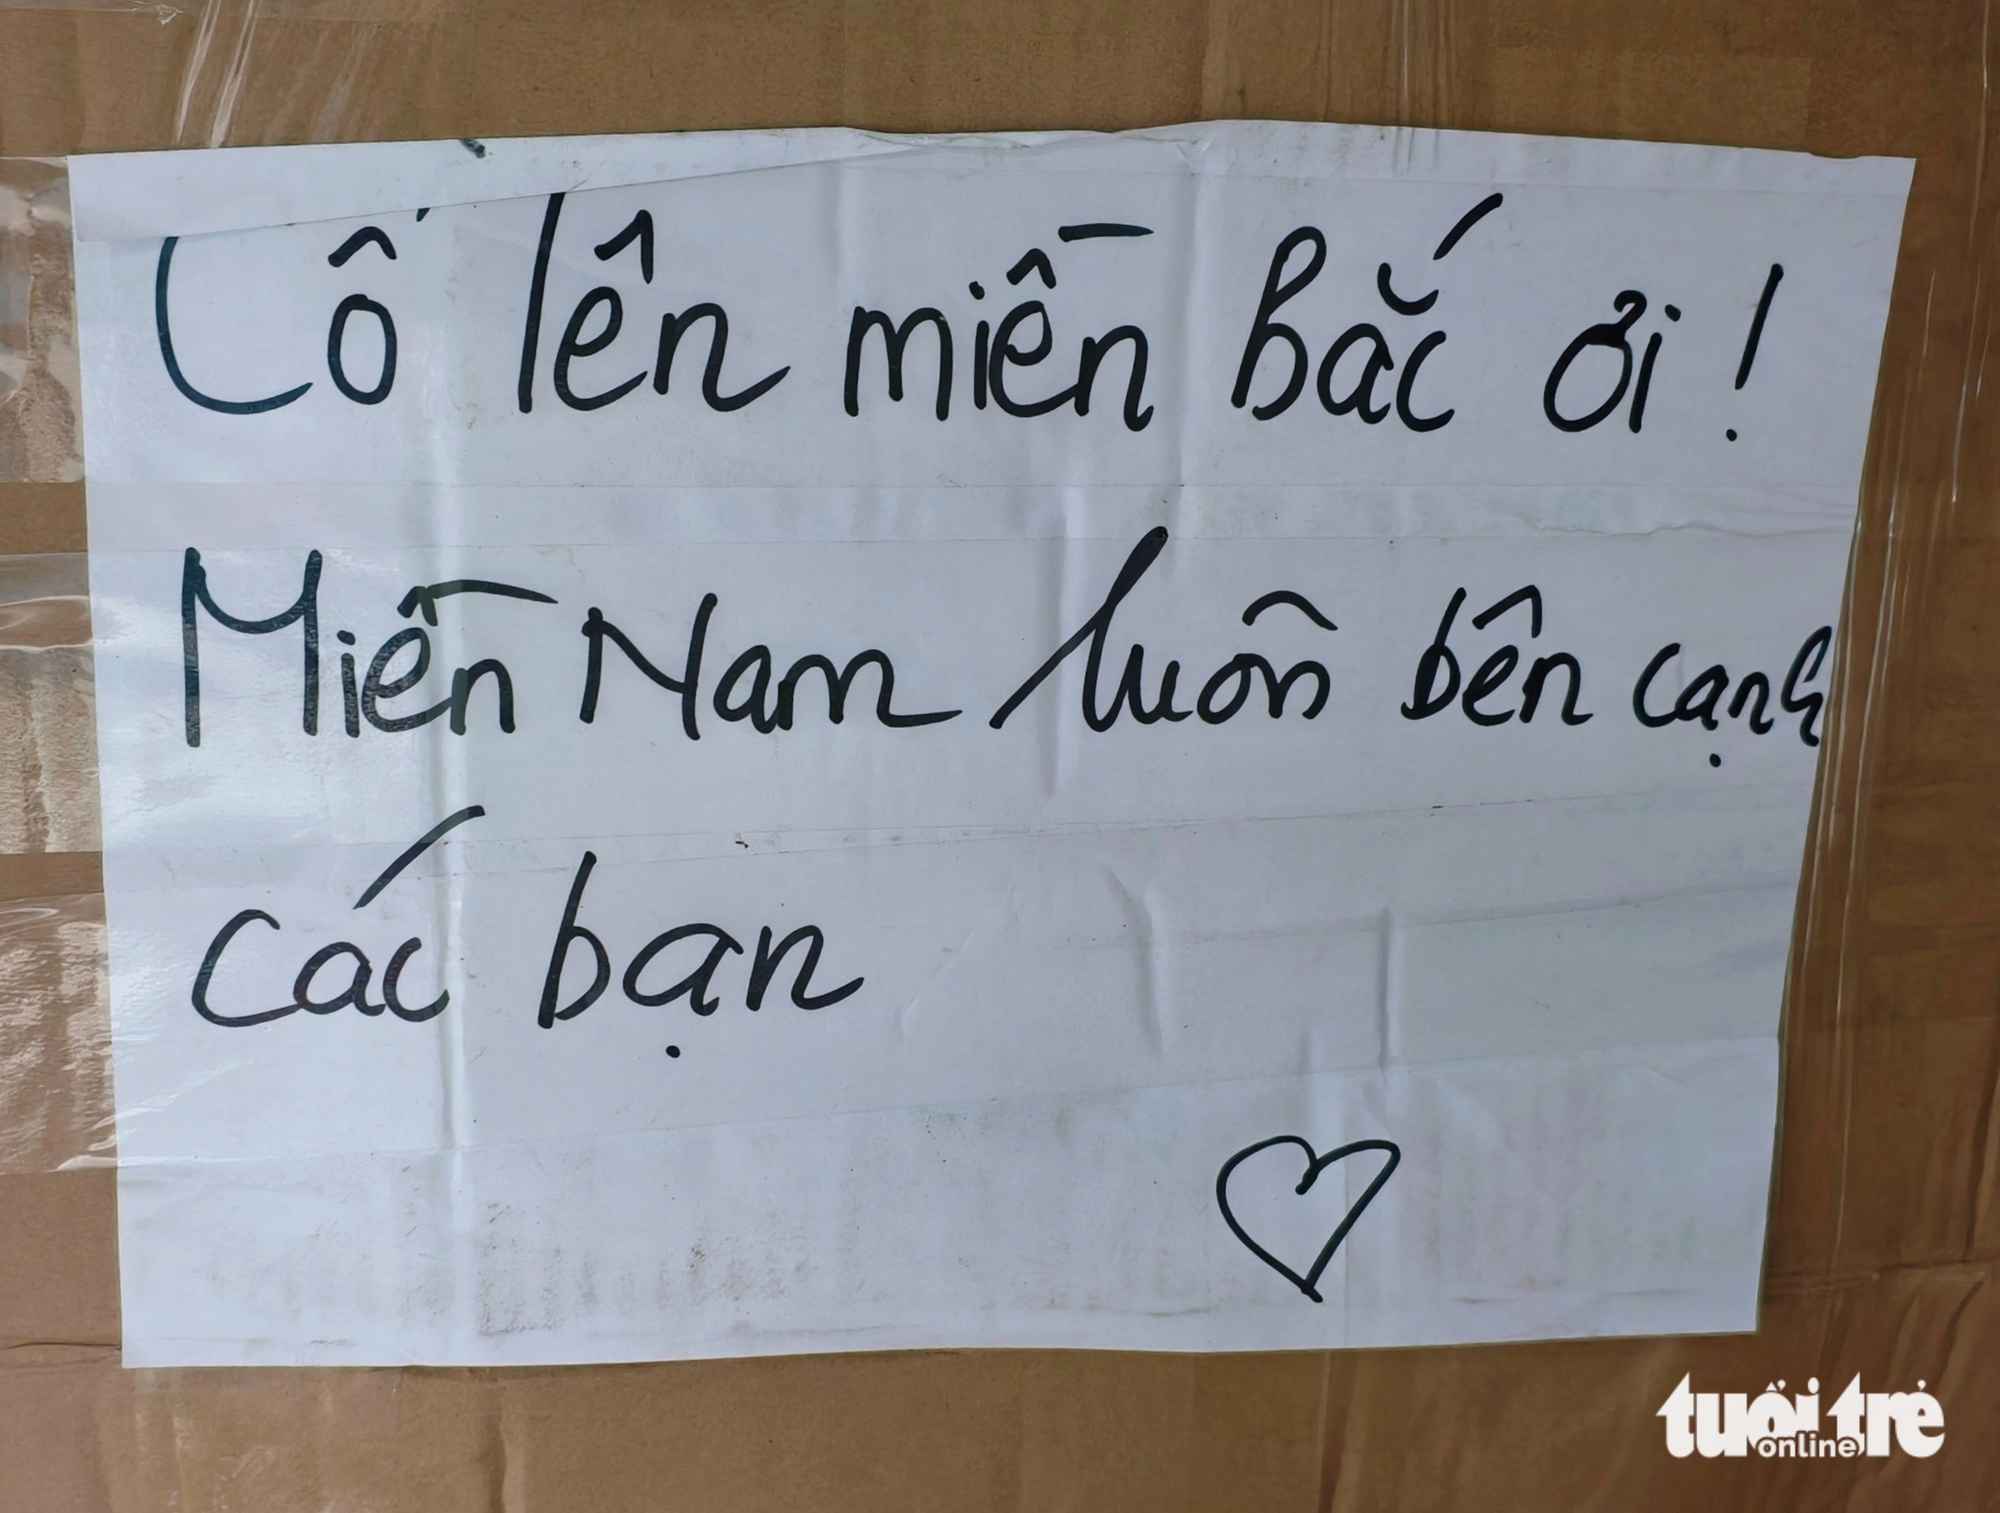 Cố lên miền Bắc ơi!
Miền Nam luôn bên cạnh
các bạn
tuổi trẻ
online